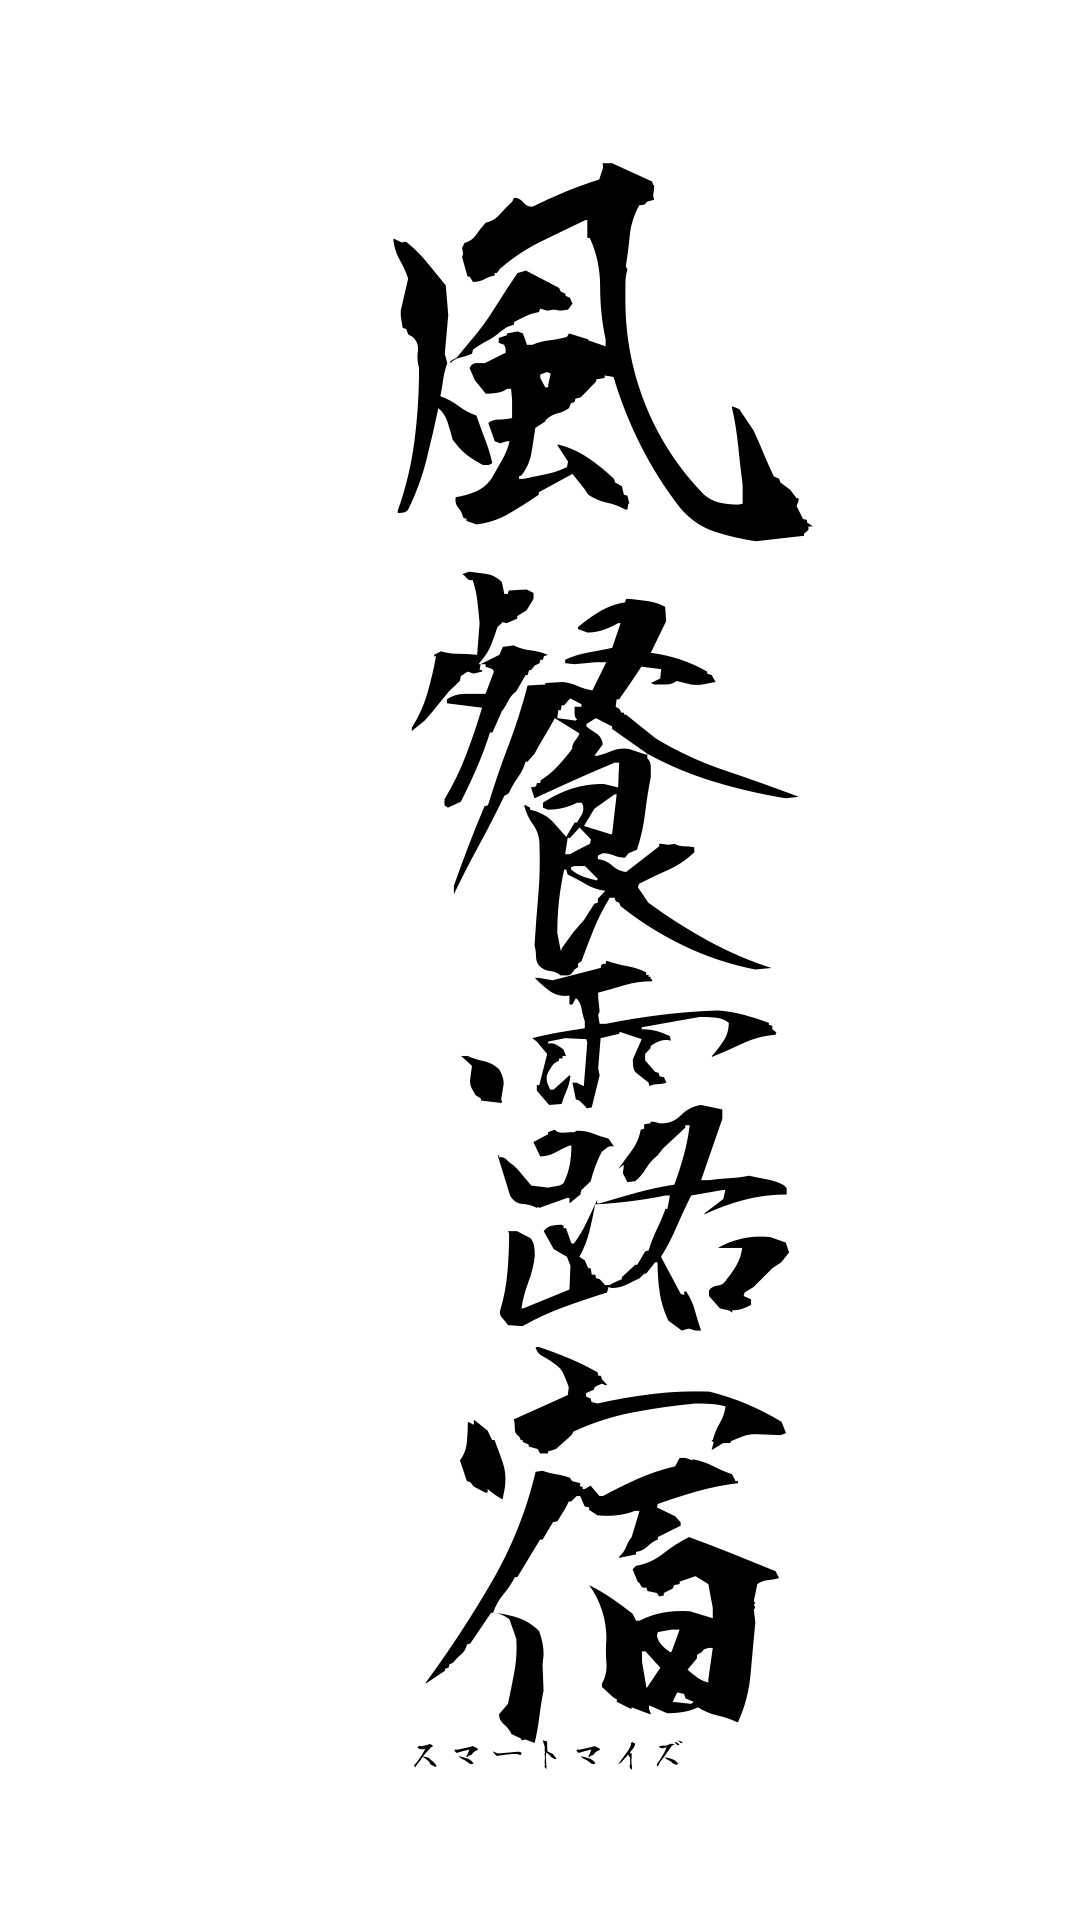 風餐露宿
スマートマイズ